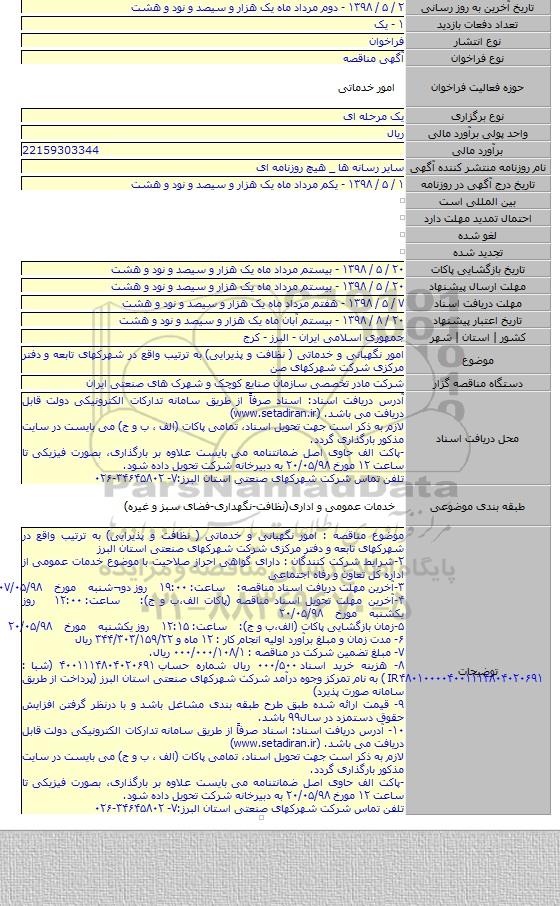 تاریخ آخرین به روز رسانی ۲ / ۵ / ۱۳۹۸ - دوم مرداد ماه یک هزار و سیصد و نود و هشت
تعداد دفعات بازدید ۱ - یک
نوع انتشار فراخوان
نوع فراخوان آگهی مناقصه
حوزه فعالیت فراخوان امور خدماتی
نوع برگزاری یک مرحله ای
واحد پولی برآورد مالی ریال
برآورد مالی 22159303344
نام روزنامه منتشر کننده آگهی سایر رسانه ها _ هیچ روزنامه ای
تاریخ درج آگهی در روزنامه ۱ / ۵ / ۱۳۹۸ - یکم مرداد ماه یک هزار و سیصد و نود و هشت
بین المللی است
احتمال تمدید مهلت دارد
لغو شده
تجدید شده
تاریخ بازگشایی پاکات ۲۰ / ۵ / ۱۳۹۸ - بیستم مرداد ماه یک هزار و سیصد و نود و هشت
مهلت ارسال پیشنهاد ۲۰ / ۵ / ۱۳۹۸ - بیستم مرداد ماه یک هزار و سیصد و نود و هشت
مهلت دریافت اسناد ۷ / ۵ / ۱۳۹۸ - هفتم مرداد ماه یک هزار و سیصد و نود و هشت
تاریخ اعتبار پیشنهاد ۲۰ / ۸ / ۱۳۹۸ - بیستم آبان ماه یک هزار و سیصد و نود و هشت
کشور | استان | شهر جمهوری اسلامی ایران - البرز - کرج
موضوع امور نگهبانی و خدماتی ( نظافت و پذیرایی) به ترتیب واقع در شهرکهای تابعه و دفتر
مرکزی شرکت شهرکهای صن
دستگاه مناقصه گزار شرکت مادر تخصصی سازمان صنایع کوچک و شهرک های صنعتی ایران
محل دریافت اسناد آدرس دریافت اسناد: اسناد صرفاً از طریق سامانه تدارکات الکترونیکی دولت قابل
دریافت می باشد. (www.setadiran.ir)
لازم به ذکر است جهت تحویل اسناد، تمامی پاکات (الف ، ب و ج) می بایست در سایت
مذکور بارگذاری گردد.
-پاکت الف حاوی اصل ضمانتنامه می بایست علاوه بر بارگذاری، بصورت فیزیکی تا
ساعت ۱۲ مورخ ۲۰/۰۵/۹۸ به دبیرخانه شرکت تحویل داده شود.
تلفن تماس شرکت شهرکهای صنعتی استان البرز:۷- ۳۴۶۴۵۸۰۲-۰۲۶
ParsNamadData
طبقه بندی موضوعی خدمات عمومی و اداری(نظافت-نگهداری-فضای سبز و غیره)
توضیحات موضوع مناقصه : امور نگهبانی و خدماتی ( نظافت و پذیرایی) به ترتیب واقع در
شهرکهای تابعه و دفتر مرکزی شرکت شهرکهای صنعتی استان البرز
۲-شرایط شرکت کنندگان : دارای گواهی احراز صلاحیت با موضوع خدمات عمومی از
اداره کل تعاون و رفاه اجتماعی
۳-آخرین مهلت دریافت اسناد مناقصه: ساعت: ۱۹:۰۰ روز دوشنبه مورخ ۰۷/۰۵/۹۸
۴-آخرین مهلت تحویل اسناد مناقصه (پاکات الف،ب و ج): ساعت: ۱۲:۰۰ روز
یکشنبه مورخ ۲۰/۰۵/۹۸
۵-زمان بازگشایی پاکات (الف،ب و ج): ساعت: ۱۲:۱۵ روز یکشنبه مورخ ۲۰/۰۵/۹۸
۶- مدت زمان و مبلغ برآورد اولیه انجام کار : ۱۲ ماه و ۳۴۴/۳۰۳/۱۵۹/۲۲ ریال
۷- مبلغ تضمین شرکت در مناقصه : ۰۰۰/۰۰۰/۱۰۸/۱ ریال.
۸- هزینه خرید اسناد ۰۰۰/۵۰۰ ریال شماره حساب ۴۰۰۱۱۱۴۸۰۴۰۲۰۶۹۱ (شبا :
IR۴۸۰۱۰۰۰۰۴۰۰۱۱۱۴۸۰۴۰۲۰۶۹۱ ) به نام تمرکز وجوه درآمد شرکت شهرکهای صنعتی استان البرز (پرداخت از طریق
سامانه صورت پذیرد)
۹- قیمت ارائه شده طبق طرح طبقه بندی مشاغل باشد و با درنظر گرفتن افزایش
حقوق دستمزد در سال۹۹ باشد.
۱۰- آدرس دریافت اسناد: اسناد صرفاً از طریق سامانه تدارکات الکترونیکی دولت قابل
دریافت می باشد. (www.setadiran.ir)
لازم به ذکر است جهت تحویل اسناد، تمامی پاکات (الف ، ب و ج) می بایست در سایت
مذکور بارگذاری گردد.
-پاکت الف حاوی اصل ضمانتنامه می بایست علاوه بر بارگذاری، بصورت فیزیکی تا
ساعت ۱۲ مورخ ۲۰/۰۵/۹۸ به دبیرخانه شرکت تحویل داده شود.
تلفن تماس شرکت شهرکهای صنعتی استان البرز:۷- ۳۴۶۴۵۸۰۲-۰۲۶